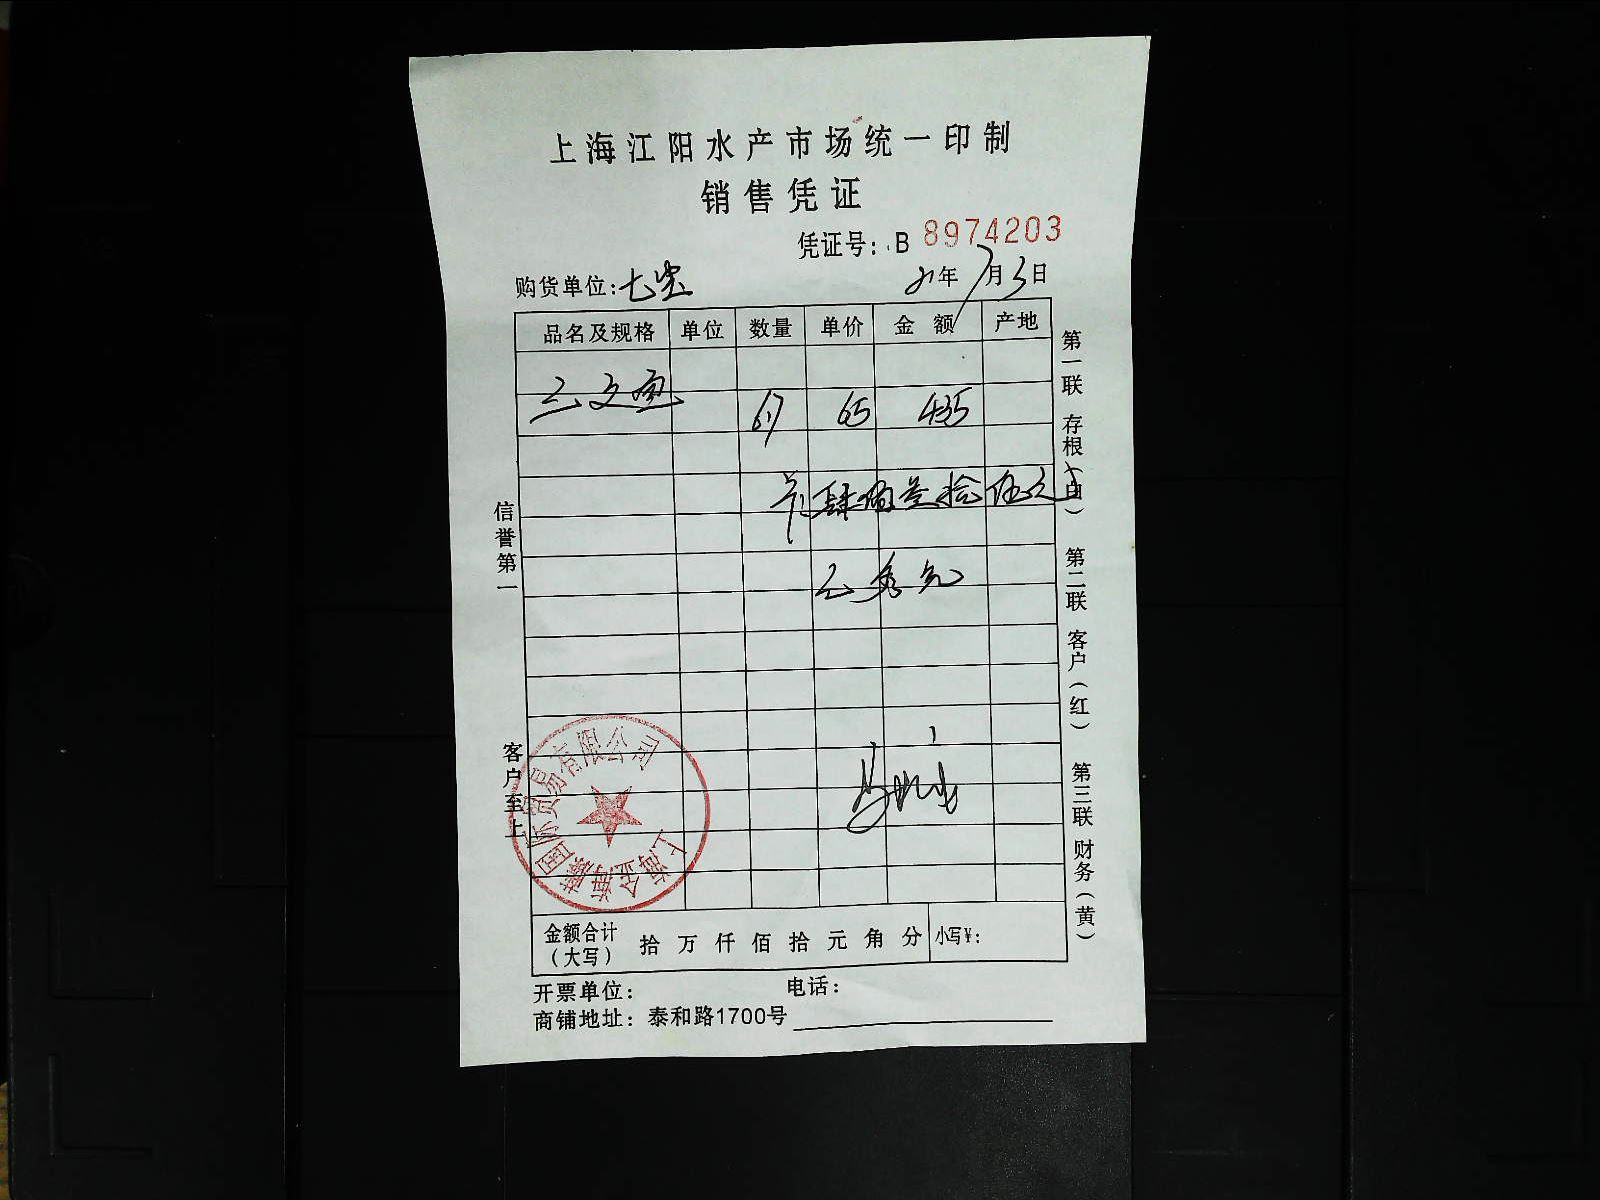 上海江阳水产市场统一印制
销售凭证
凭证号: B 8974203
购货单位:七宝 21年7月3日
品名及规格 单位 数量 单价 金额 产地
三文鱼 6.7 65 435
肆佰叁拾伍元
第一联 存根(白) 第二联 客户(红) 第三联 财务(黄)
信誉第一
客户至上
国际贸易有限公司
上海
金额合计(大写) 拾 万 仟 佰 拾 元 角 分 小写¥:
开票单位: 电话:
商铺地址: 泰和路1700号